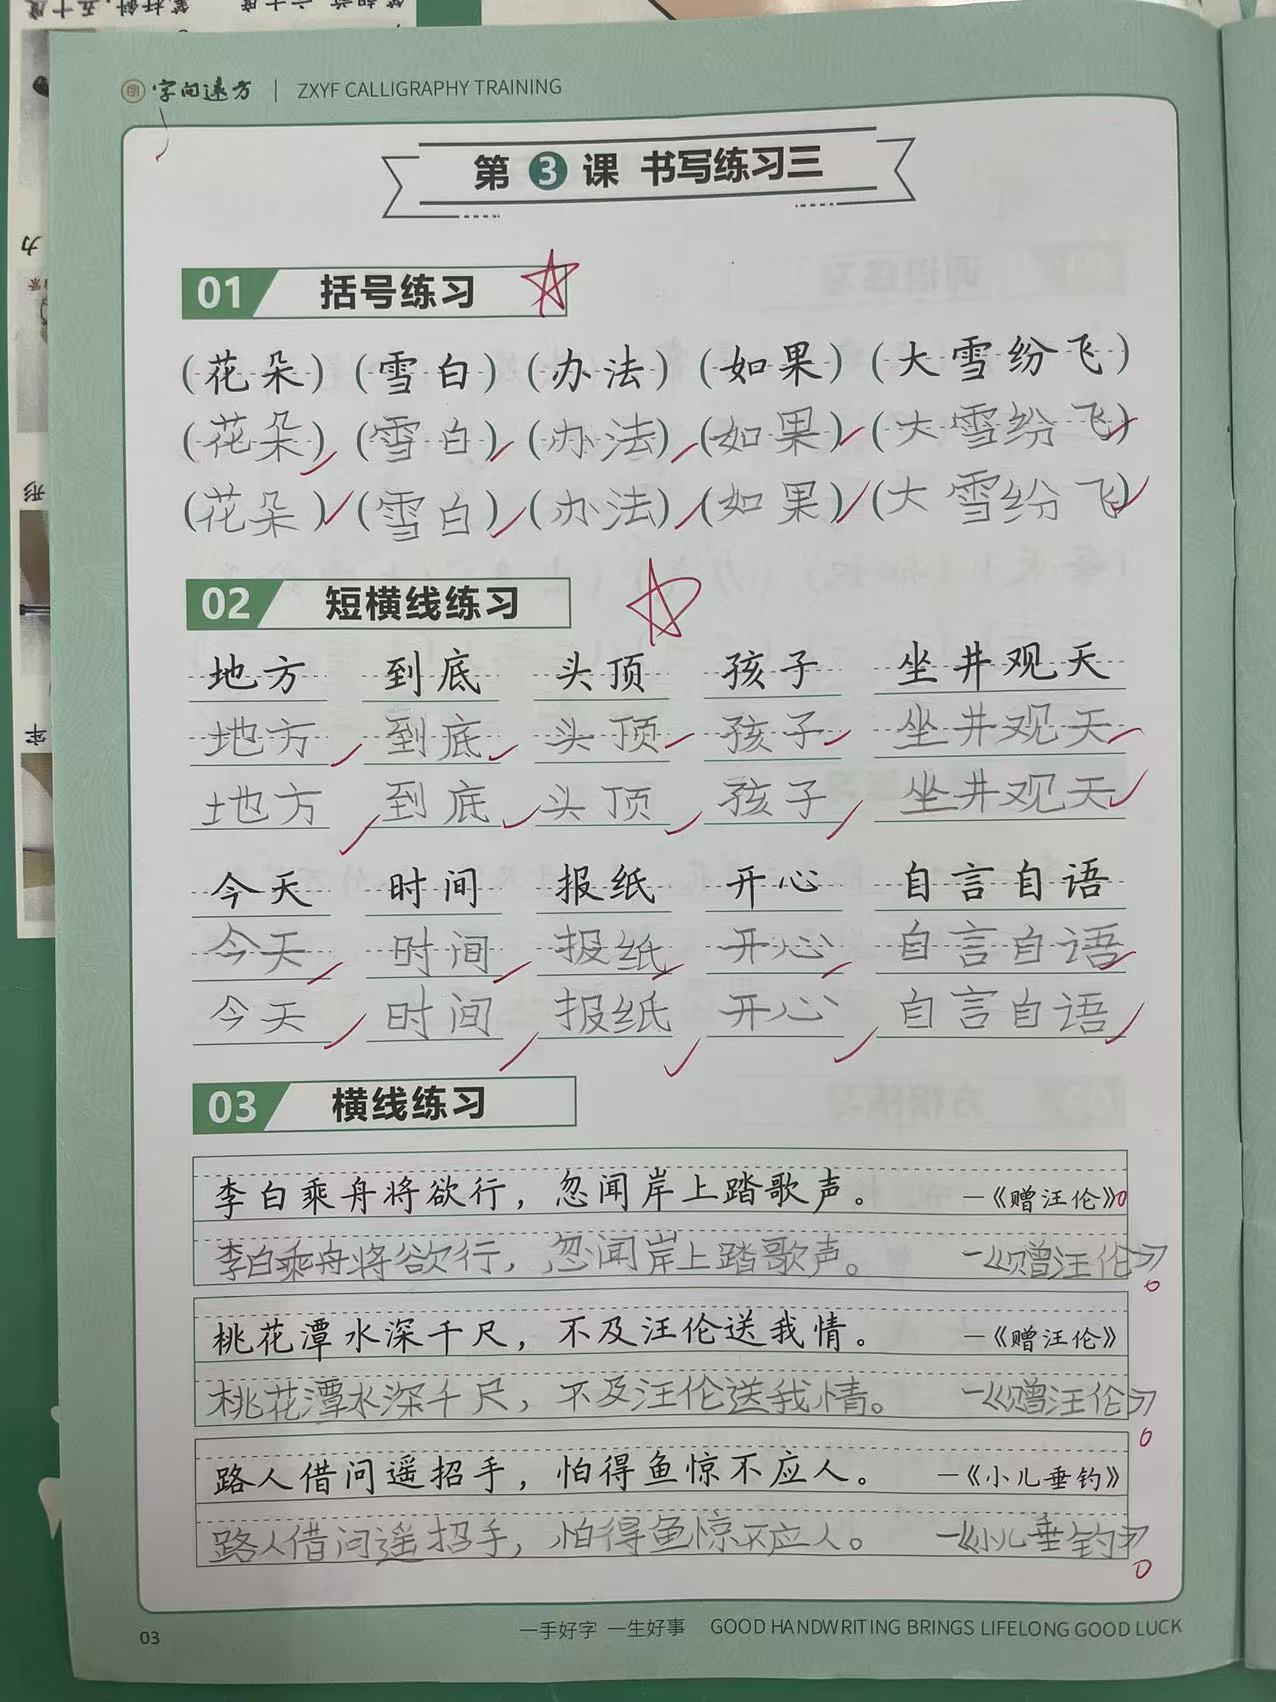 字间远方 | ZXYF CALLIGRAPHY TRAINING
第 3 课 书写练习三
01 括号练习
(花朵) (雪白) (办法) (如果) (大雪纷飞)
(花朵) (雪白) (办法) (如果) (大雪纷飞)
(花朵) (雪白) (办法) (如果) (大雪纷飞)
02 短横线练习
地方 到底 头顶 孩子 坐井观天
地方 到底 头顶 孩子 坐井观天
地方 到底 头顶 孩子 坐井观天
今天 时间 报纸 开心 自言自语
今天 时间 报纸 开心 自言自语
今天 时间 报纸 开心 自言自语
03 横线练习
李白乘舟将欲行，忽闻岸上踏歌声。 —《赠汪伦》
李白乘舟将欲行，忽闻岸上踏歌声。 —《赠汪伦》
桃花潭水深千尺，不及汪伦送我情。 —《赠汪伦》
桃花潭水深千尺，不及汪伦送我情。 —《赠汪伦》
路人借问遥招手，怕得鱼惊不应人。 —《小儿垂钓》
路人借问遥招手，怕得鱼惊不应人。 —《小儿垂钓》
03 一手好字 一生好事 GOOD HANDWRITING BRINGS LIFELONG GOOD LUCK